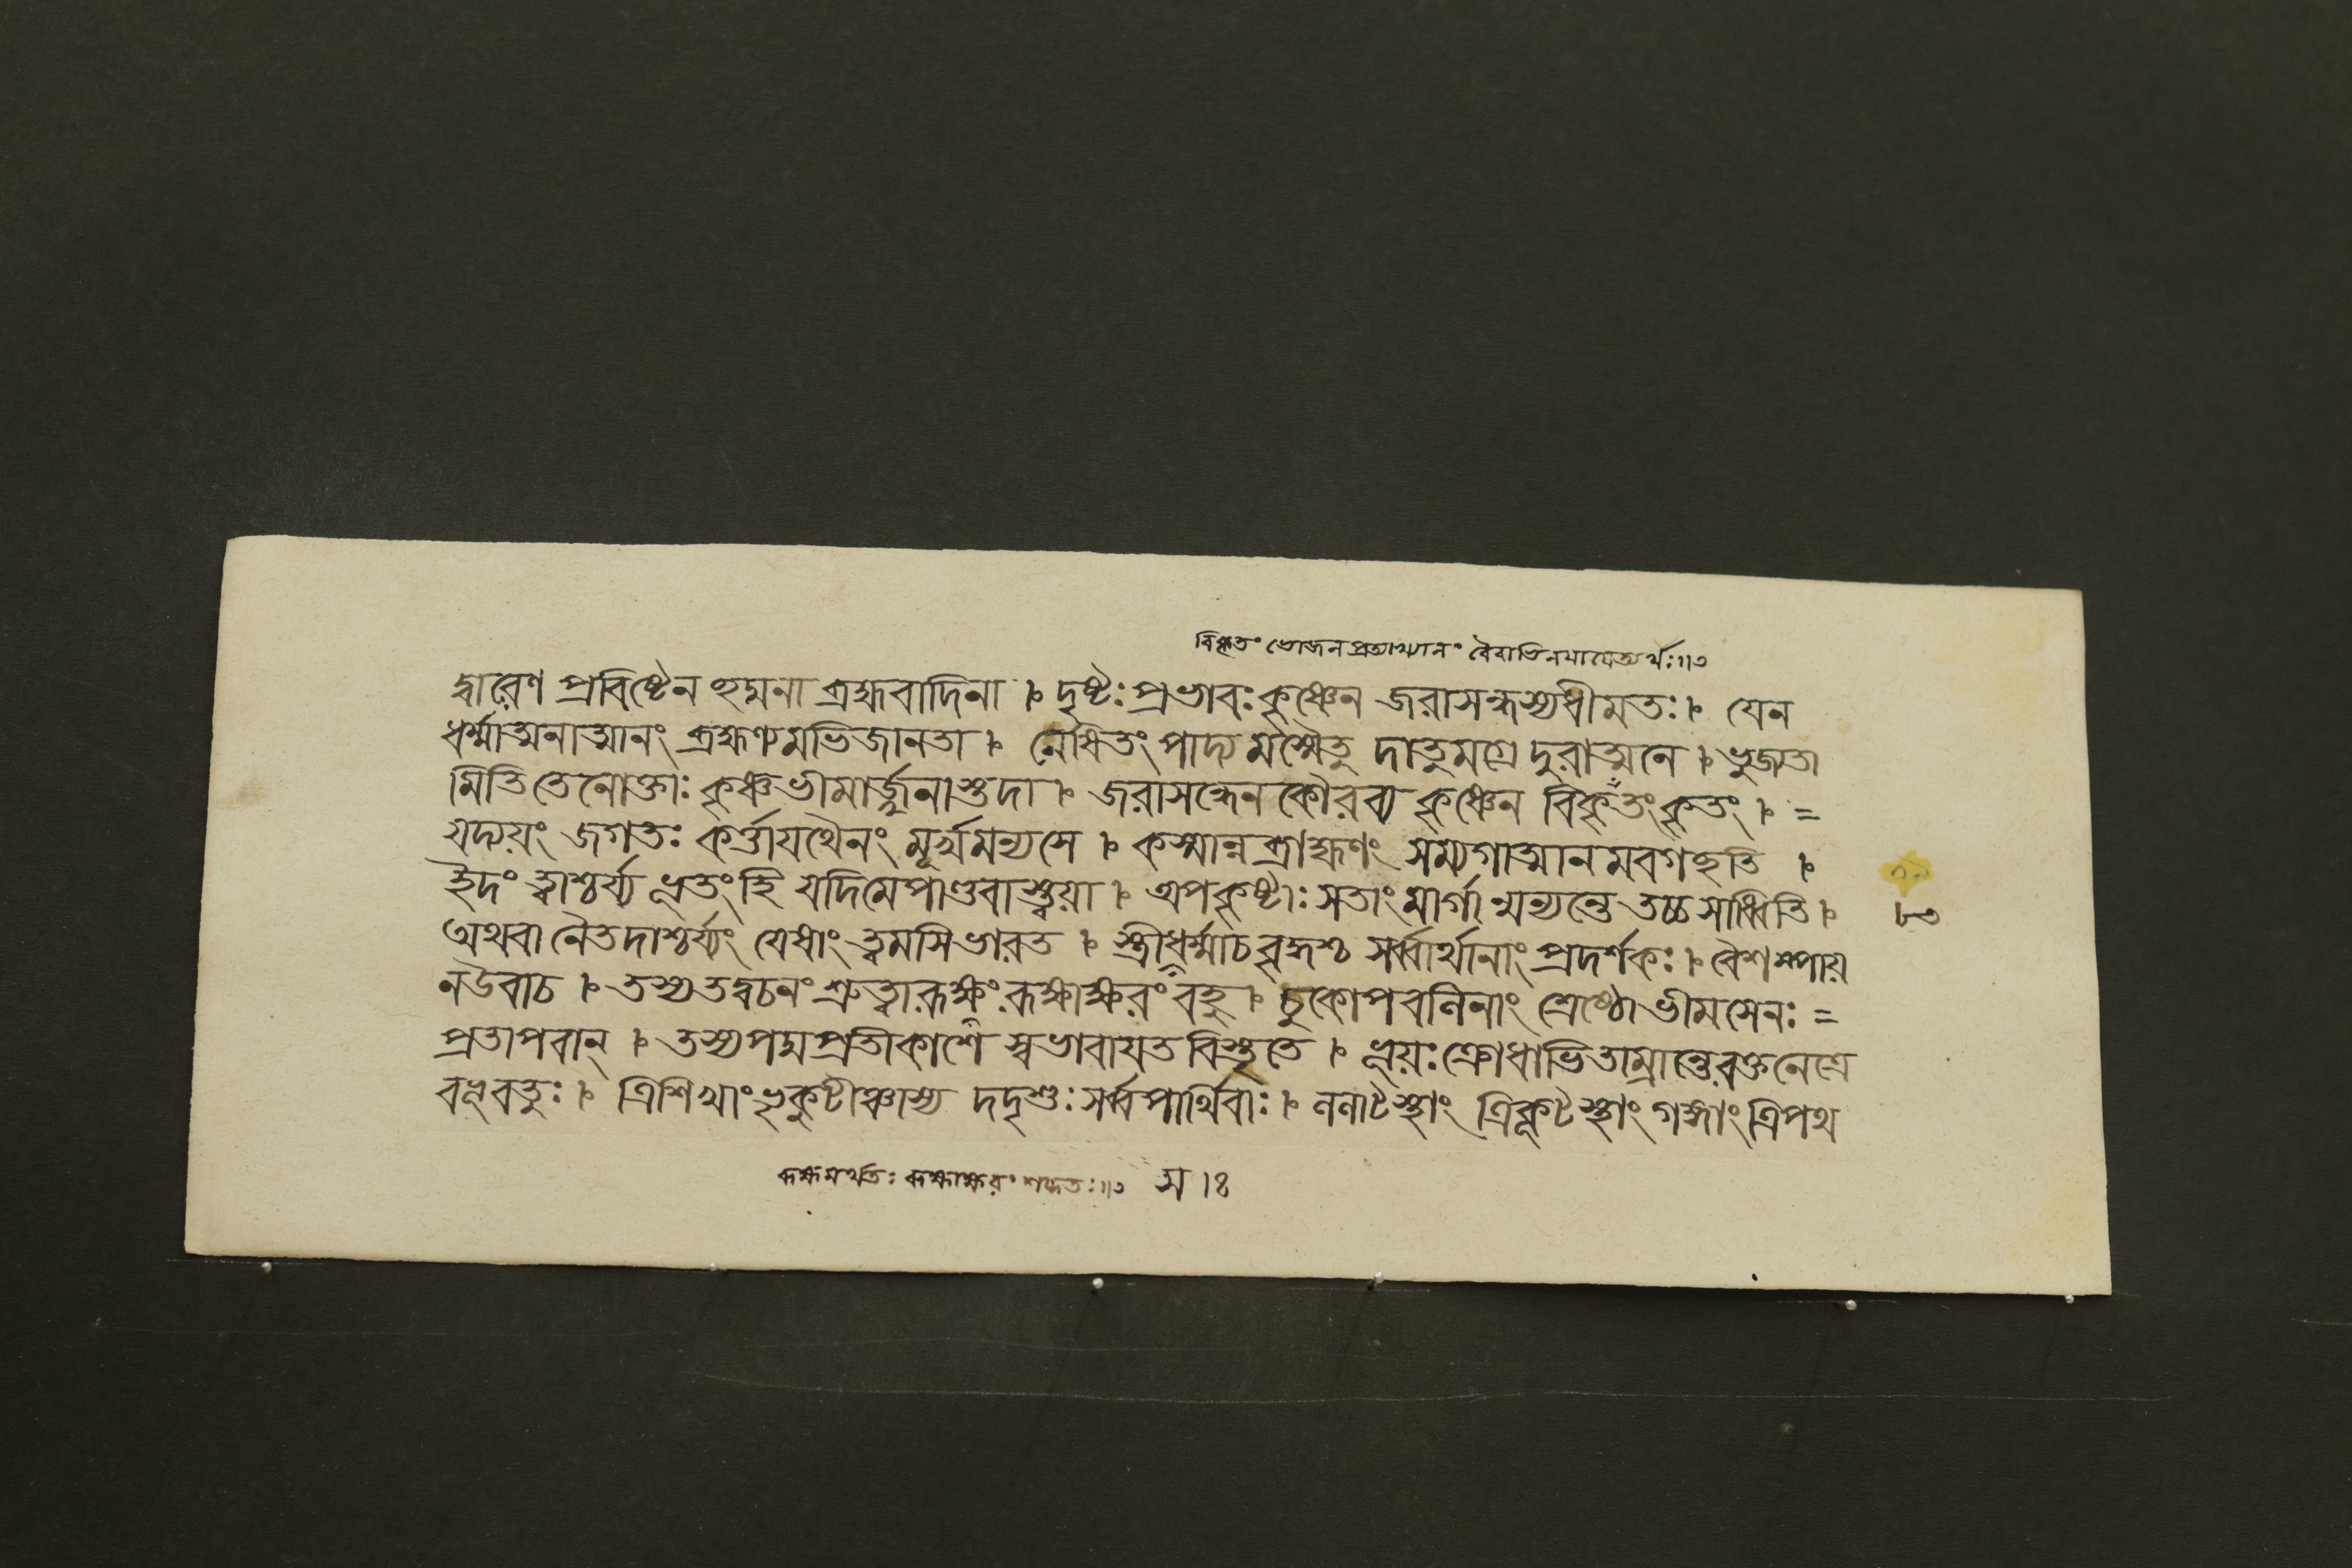 বিকৃতং ভোজনপ্রত্যাখ্যানং বৈরাতিনয়ায়েত্যর্থঃ॥৩
দ্বারেণ প্রবিষ্টেন ছদ্মনা ব্রহ্মবাদিনা । দৃষ্টঃ প্রভাবঃ কৃষ্ণেন জরাসন্ধস্য ধীমতঃ । যেন
ধর্ম্মাত্মনাত্মানং ব্রহ্মণ্যমভিজানতা । নেষিতং পাদ্যমস্মৈতু দাতুমগ্রে দুরাত্মনে । ভুজ্যতা
মিতি তেনোক্তাঃ কৃষ্ণভীমার্জ্জুনাস্তদা । জরাসন্ধেন কৌরব্য কৃষ্ণেন বিকৃতং কৃতং । =
যদ্যয়ং জগতঃ কর্ত্তা যথৈনং মূর্খ মন্যসে । কস্মান্ন ব্রাহ্মণং সম্যগাত্মানমবগছতি ।
ইদং ত্বাশ্চর্য্য ভূতং হি যদিমে পাণ্ডবাস্ত্বয়া । অপকৃষ্টাঃ সতাং মার্গান্মন্যন্তে তচ্চ সাধ্বিতি ।
৮৩
অথবা নৈতদাশ্চর্য্যং যেষাং ত্বমসি ভারত । স্ত্রীধর্ম্মাচ বৃদ্ধশ্চ সর্ব্বার্থানাং প্রদর্শকঃ । বৈশম্পায়
ন উবাচ । তস্য তদ্বচনং শ্রুত্বা রূক্ষং রূক্ষাক্ষরং বহু । চুকোপ বলিনাং শ্রেষ্ঠো ভীমসেনঃ =
প্রতাপবান্ । তস্য পদ্মপ্রতীকাশে স্বভাবায়ত বিস্তৃতে । ভূয়ঃ ক্রোধাভিতাম্রান্তে রক্তনেত্রে
বভূবতুঃ । ত্রিশিখাং ভ্রুকুটীঞ্চাস্য দদৃশুঃ সর্ব্বপার্থিবাঃ । ললাটস্থাং ত্রিকূটস্থাং গঙ্গাং ত্রিপথ
রূক্ষমর্থতঃ রূক্ষাক্ষরং শব্দতঃ॥৩ স।ঃ